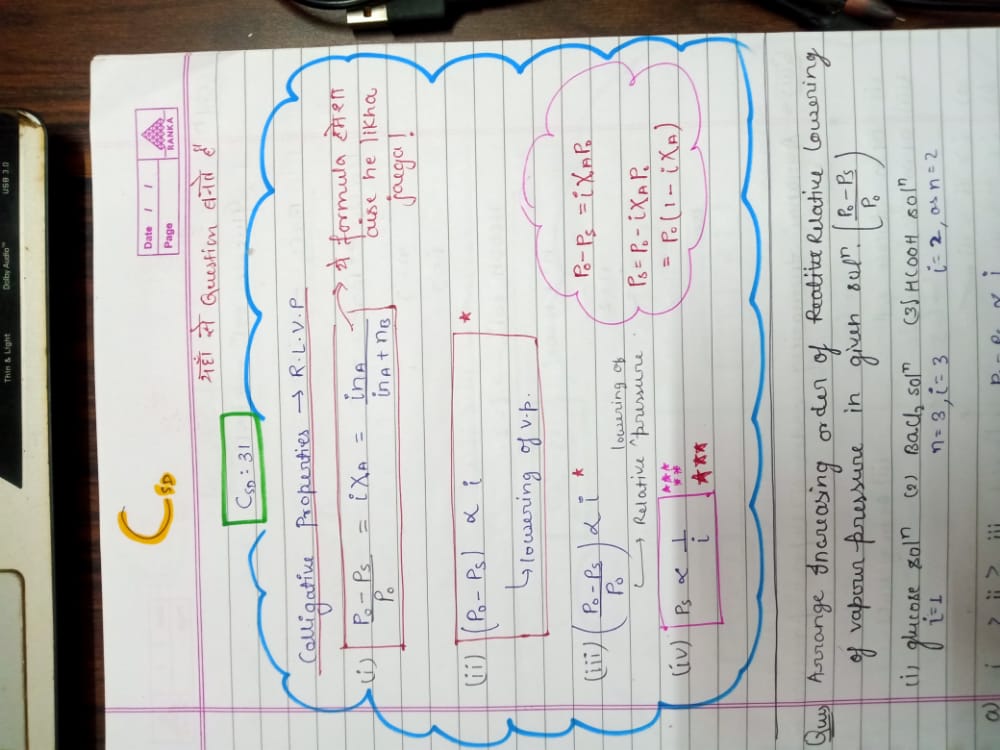 Thin & Light Dolby Audio™ USB 3.0
Date / /
Page
RANKA
C SD
यहाँ से Question बनते हैं
CSD : 31
Colligative Properties → R.L.V.P
(i) P₀ - Ps / P₀ = i χA = inA / inA + nB
→ ये formula हमेशा
aise he likha
jaega!
(ii) (P₀ - Ps) ∝ i *
↳ lowering of v.p.
(iii) (P₀ - Ps / P₀) ∝ i *
↳ Relative ^ lowering of pressure
(iv) Ps ∝ 1/i
P₀ - Ps = i χA P₀
Ps = P₀ - i χA P₀
= P₀ (1 - i χA)
Ques Arrange Increasing order of Relative Lowering
of vapour pressure in given solⁿ. (P₀ - Ps / P₀)
(1) glucose solⁿ (2) BaCl₂ solⁿ (3) HCOOH solⁿ
i=1 n=3, i=3 i=2, as n=2
a) i > ii > iii